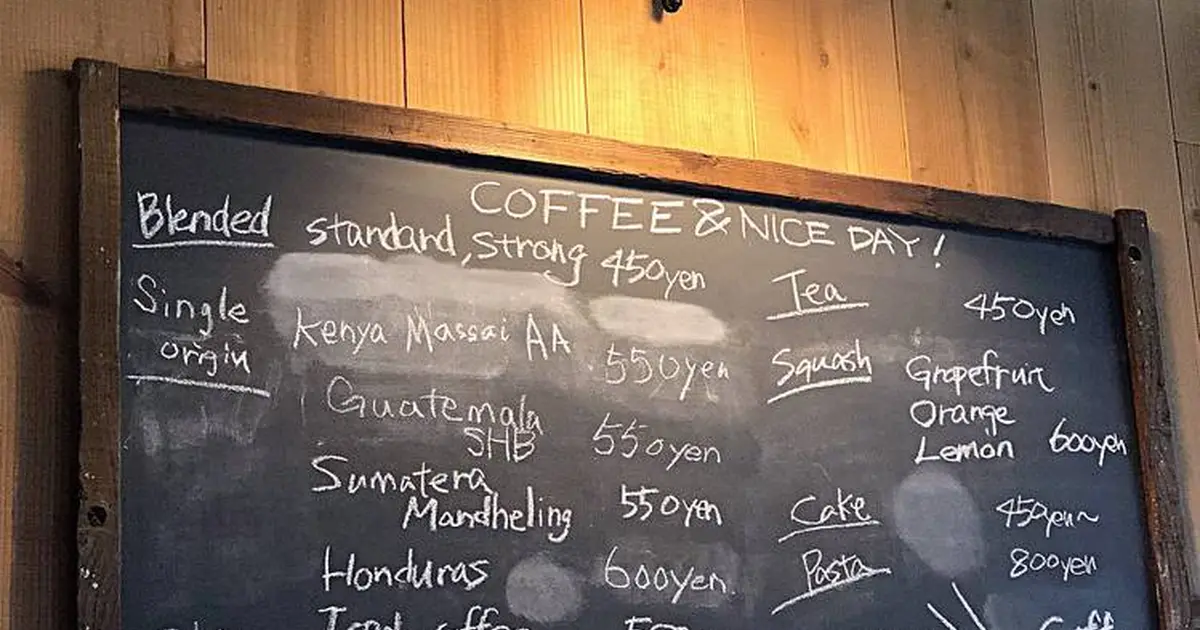 COFFEE & NICE DAY!
Blended standard, strong 450yen
Single origin
Kenya Massai AA 550yen
Guatemala SHB 550yen
Sumatera Mandheling 550yen
Honduras 600yen
Iced coffee
Tea 450yen
Squash Grapefruit
Orange
Lemon 600yen
Cake 450yen~
Pasta 800yen